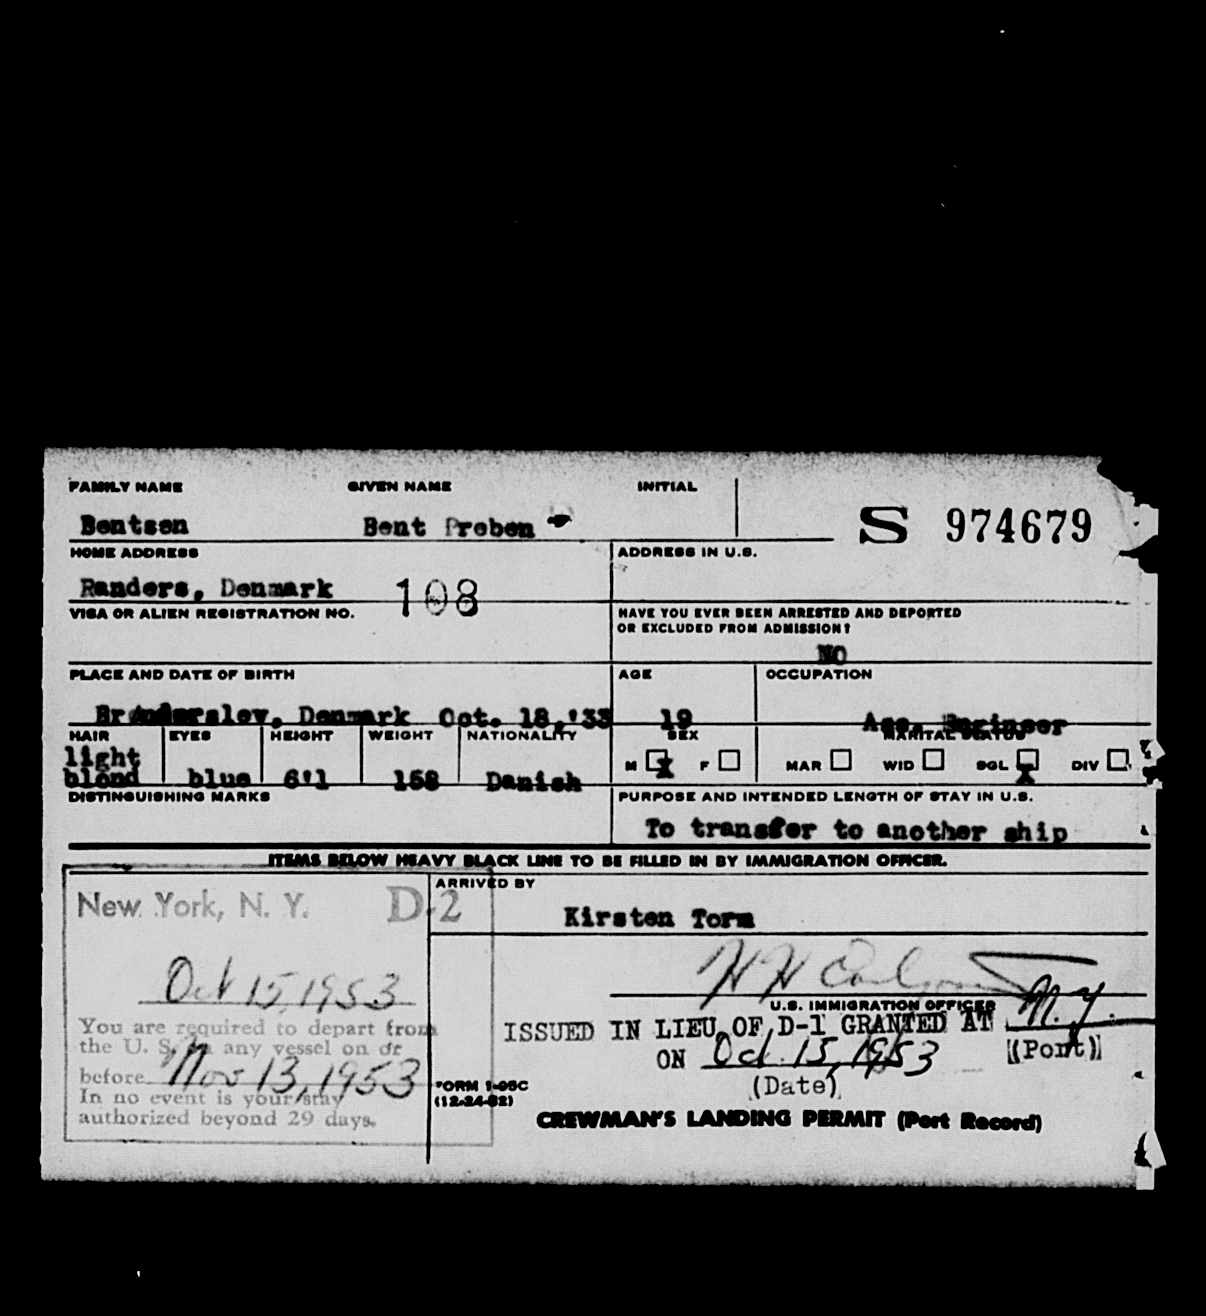 FAMILY NAME GIVEN NAME INITIAL
Bentsen Bent Preben S 974679
HOME ADDRESS ADDRESS IN U.S.
Randers, Denmark 108
VISA OR ALIEN REGISTRATION NO. HAVE YOU EVER BEEN ARRESTED AND DEPORTED
OR EXCLUDED FROM ADMISSION?
NO
PLACE AND DATE OF BIRTH AGE OCCUPATION
Brønderslev, Denmark Oct. 18,'33 19 Ass. Engineer
HAIR EYES HEIGHT WEIGHT NATIONALITY SEX MARITAL STATUS
light
blond blue 6'1 158 Danish M X F MAR WID SGL X DIV
DISTINGUISHING MARKS PURPOSE AND INTENDED LENGTH OF STAY IN U.S.
To transfer to another ship
ITEMS BELOW HEAVY BLACK LINE TO BE FILLED IN BY IMMIGRATION OFFICER.
ARRIVED BY
New York, N. Y. D-2 Kirsten Torm
Oct 15, 1953
H H
U.S. IMMIGRATION OFFICER
You are required to depart from
the U. S. in any vessel on or
before Nov 13, 1953
In no event is your stay
authorized beyond 29 days.
ISSUED IN LIEU OF D-1 GRANTED AT N.Y.
ON Oct. 15, 1953 (Port)
(Date)
FORM I-95C
(12-24-52)
CREWMAN'S LANDING PERMIT (Port Record)